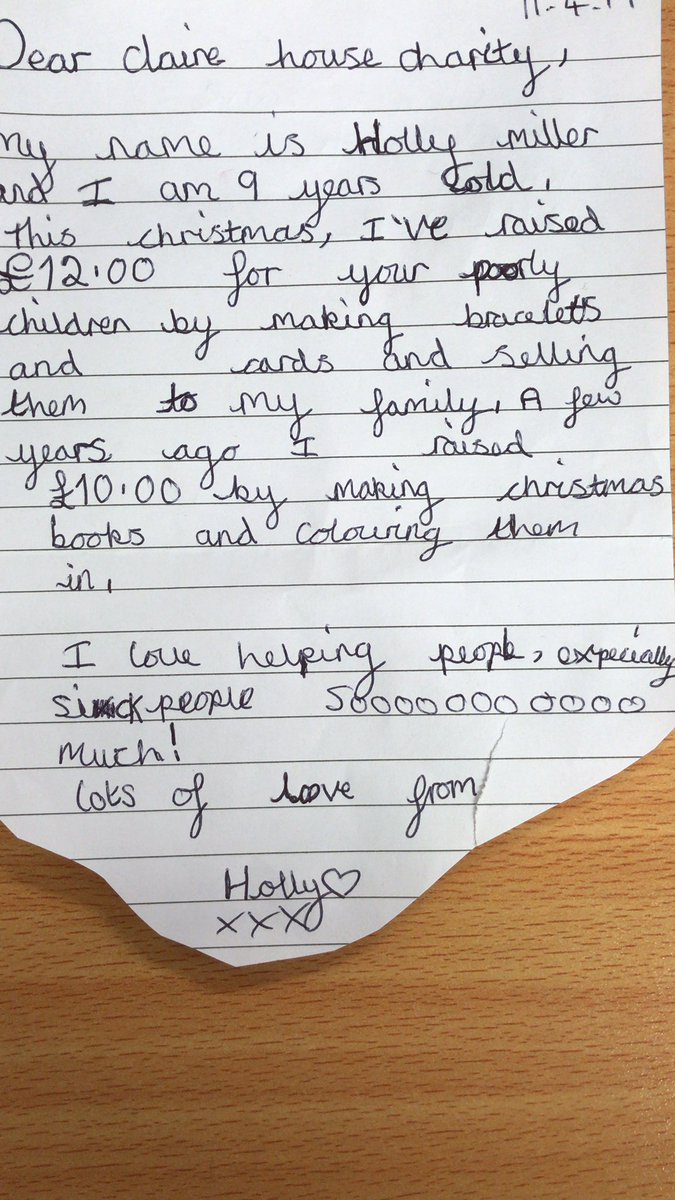 Dear claire house charity,
my name is Holly miller
and I am 9 years old.
This christmas, I've raised
£12.00 for your poorly
children by making braceletts
and cards and selling
them to my family. A few
years ago I raised
£10.00 by making christmas
books and colouring them
in.
I love helping people, expecially
sick people SOOOOOOOOOOOO
much!
Lots of love from
Holly♡
xxx